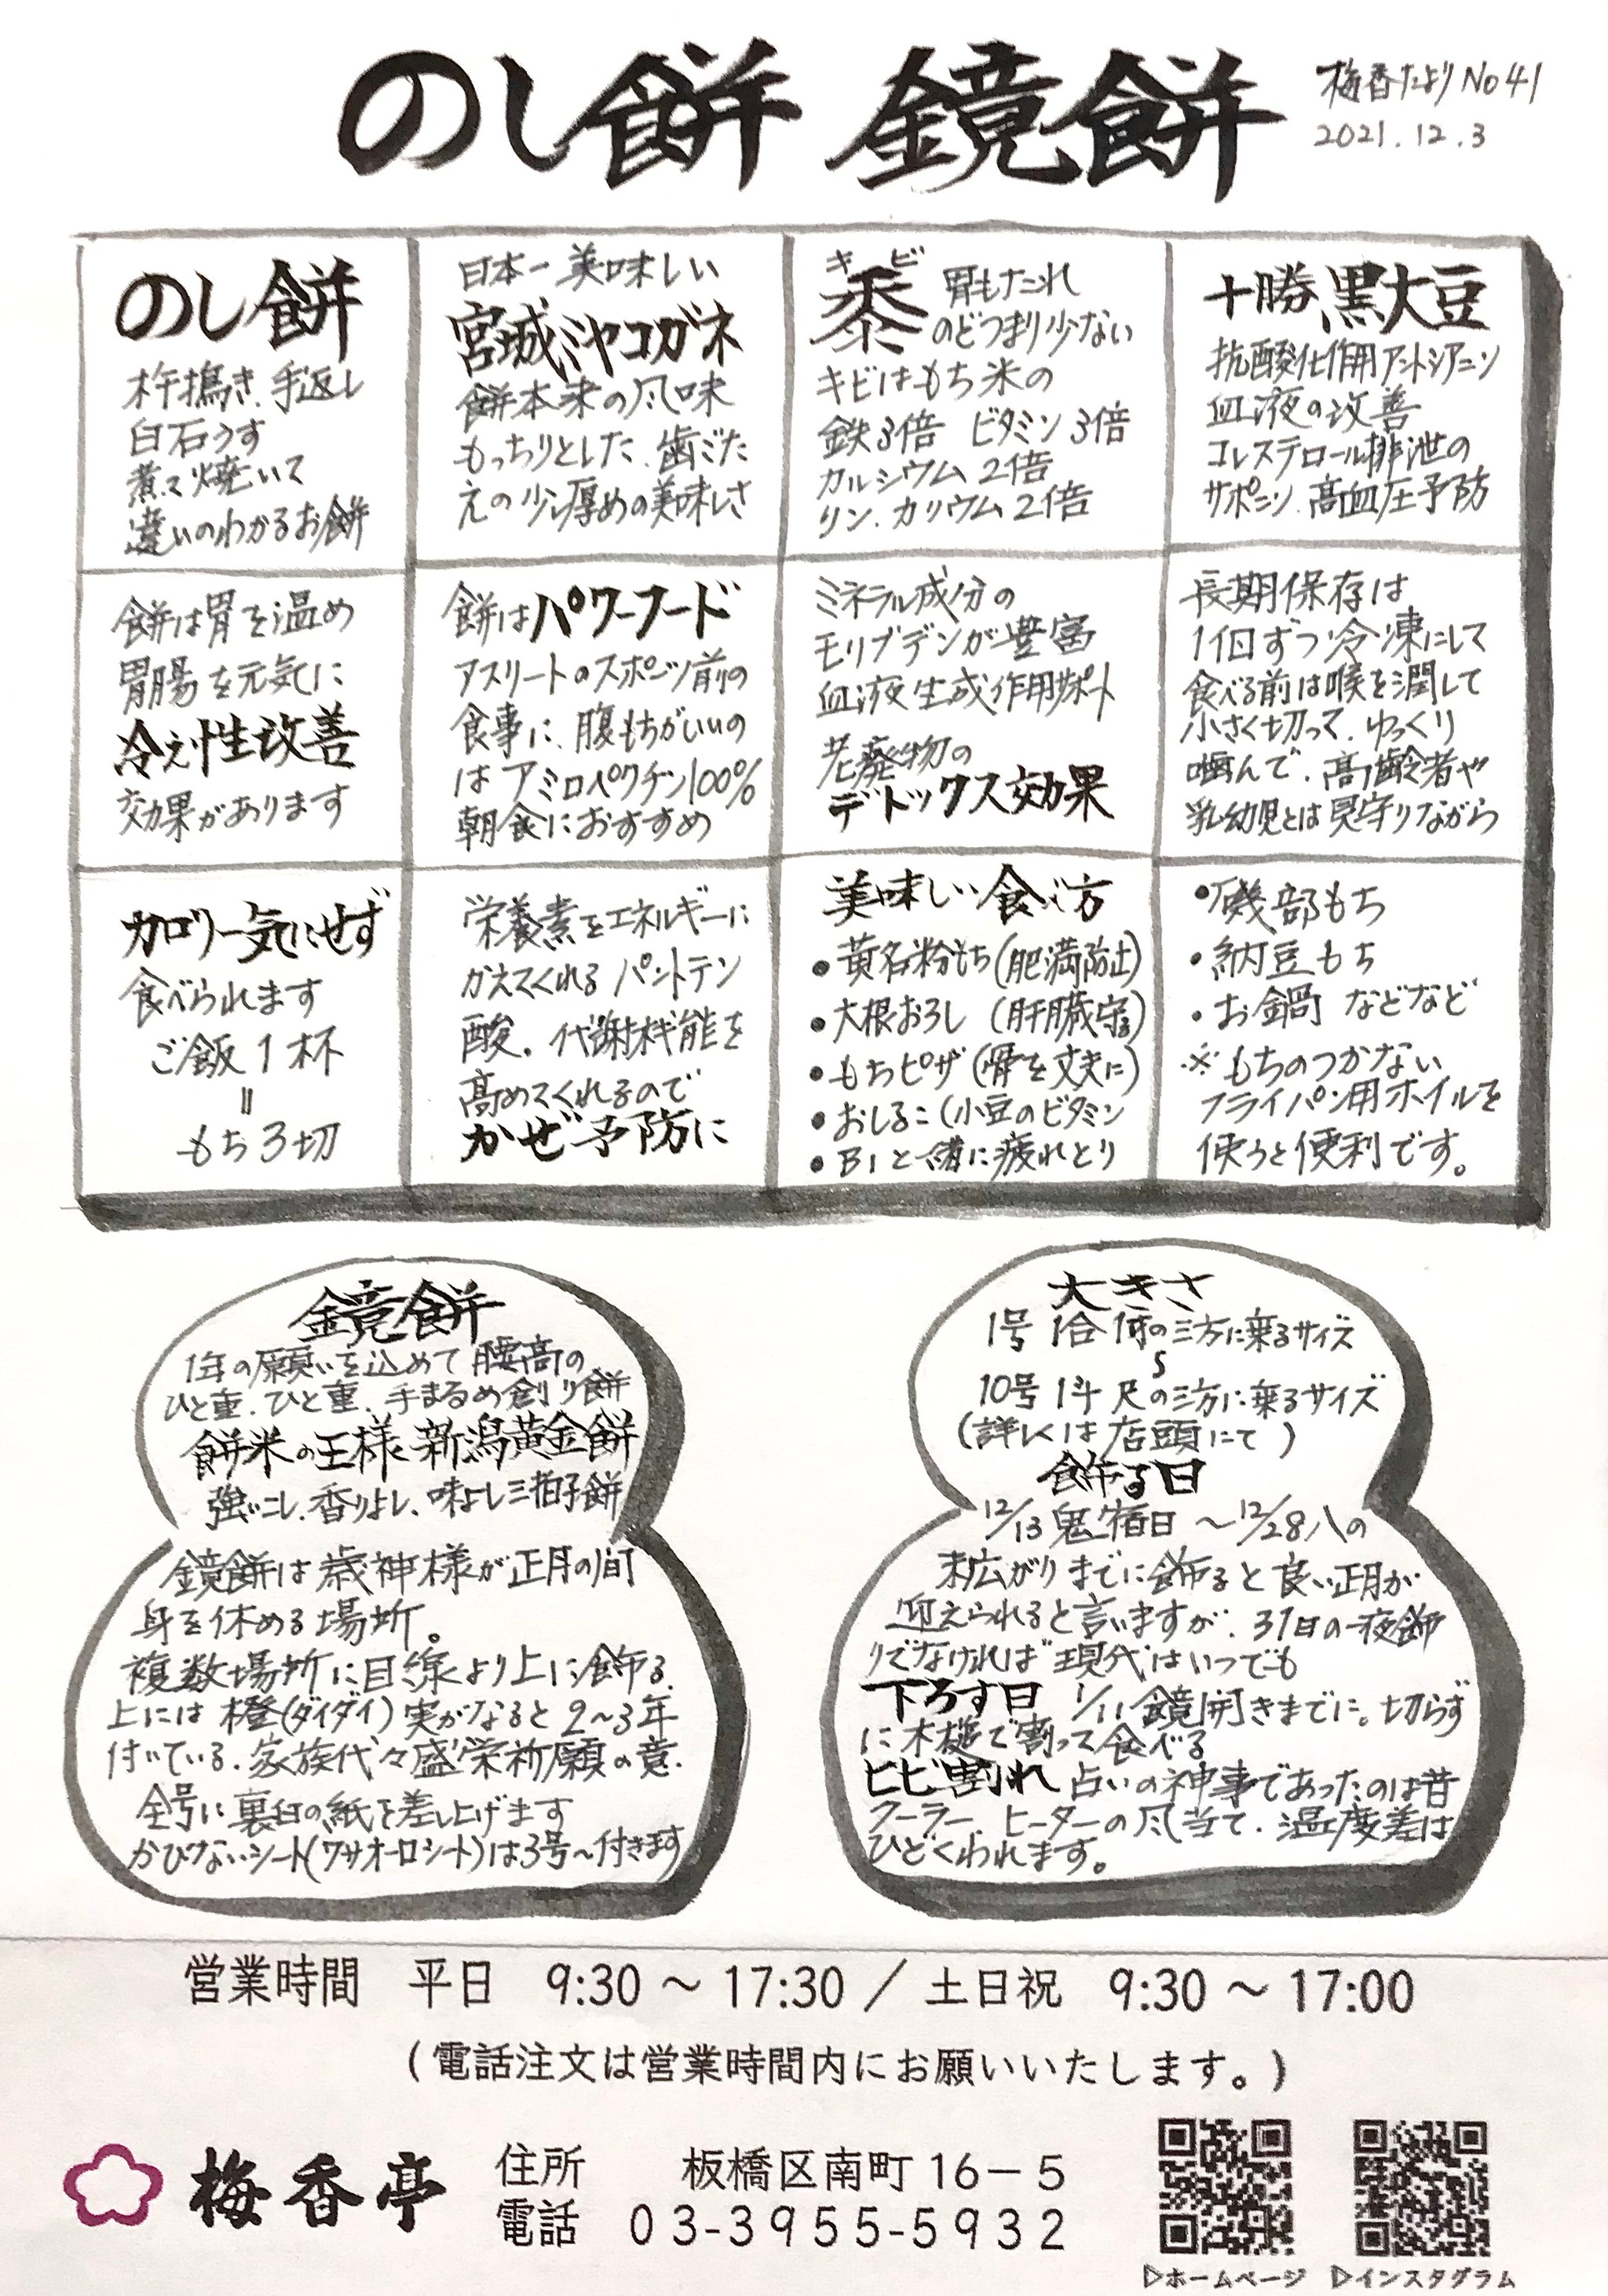 のし餅 鏡餅
梅香だより No41
2021.12.3
のし餅
杵搗き、手返し
臼石うす
煮て焼いて
違いのわかるお餅
日本一美味しい
宮城ミヤコガネ
餅本来の風味
もっちりとした、歯ごた
えの少し厚めの美味しさ
キビ
黍 胃もたれ
のどつまり少ない
キビはもち米の
鉄3倍 ビタミン3倍
カルシウム2倍
リン、カリウム2倍
十勝、黒大豆
抗酸化作用アントシアニン
血液の改善
コレステロール排泄の
サポニン、高血圧予防
餅は胃を温め
胃腸を元気に
冷え性改善
効果があります
餅はパワーフード
アスリートのスポーツ前の
食事に、腹もちがいいの
はアミロペクチン100%
朝食におすすめ
ミネラル成分の
モリブデンが豊富
血液生成作用サポート
老廃物の
デトックス効果
長期保存は
1個ずつ冷凍にして
食べる前は喉を潤して
小さく切って、ゆっくり
噛んで、高齢者や
乳幼児とは見守りながら
カロリー気にせず
食べられます
ご飯1杯
=
もち3切
栄養素をエネルギーに
かえてくれるパントテン
酸、代謝機能を
高めてくれるので
かぜ予防に
美味しい食べ方
・黄名粉もち(肥満防止)
・大根おろし(肝臓守る)
・もちピザ(骨を丈夫に)
・おしるこ(小豆のビタミン
・B1と一緒に疲れとり
・磯部もち
・納豆もち
・お鍋 などなど
※もちのつかない
フライパン用ホイルを
使うと便利です。
鏡餅
1年の願いを込めて腰高の
ひと重、ひと重、手まるめ創り餅
餅米の王様 新潟黄金餅
強いこし、香りよし、味よし三拍子餅
鏡餅は歳神様が正月の間
身を休める場所。
複数場所に目線より上に飾る、
上には橙(ダイダイ)実がなると2〜3年
付いている、家族代々盛栄祈願の意、
全号に裏白の紙を差し上げます
かびないシート(ワサオーロシート)は3号〜付きます
大きさ
1号 1合 1寸の三方に乗るサイズ
〜
10号 1斗 尺の三方に乗るサイズ
(詳しくは店頭にて)
飾る日
12/13鬼宿日〜12/28八の
末広がりまでに飾ると良い正月が
迎えられると言いますが、31日の一夜飾
りでなければ現代はいつでも
下ろす日 1/11鏡開きまでに。切らず
に木槌で割って食べる
ヒビ割れ 占いの神事であったのは昔
クーラー、ヒーターの風当て、温度差は
ひどくわれます。
営業時間 平日 9:30 ～ 17:30 / 土日祝 9:30 ～ 17:00
(電話注文は営業時間内にお願いいたします。)
梅香亭
住所 板橋区南町16－5
電話 03-3955-5932
▷ホームページ ▷インスタグラム